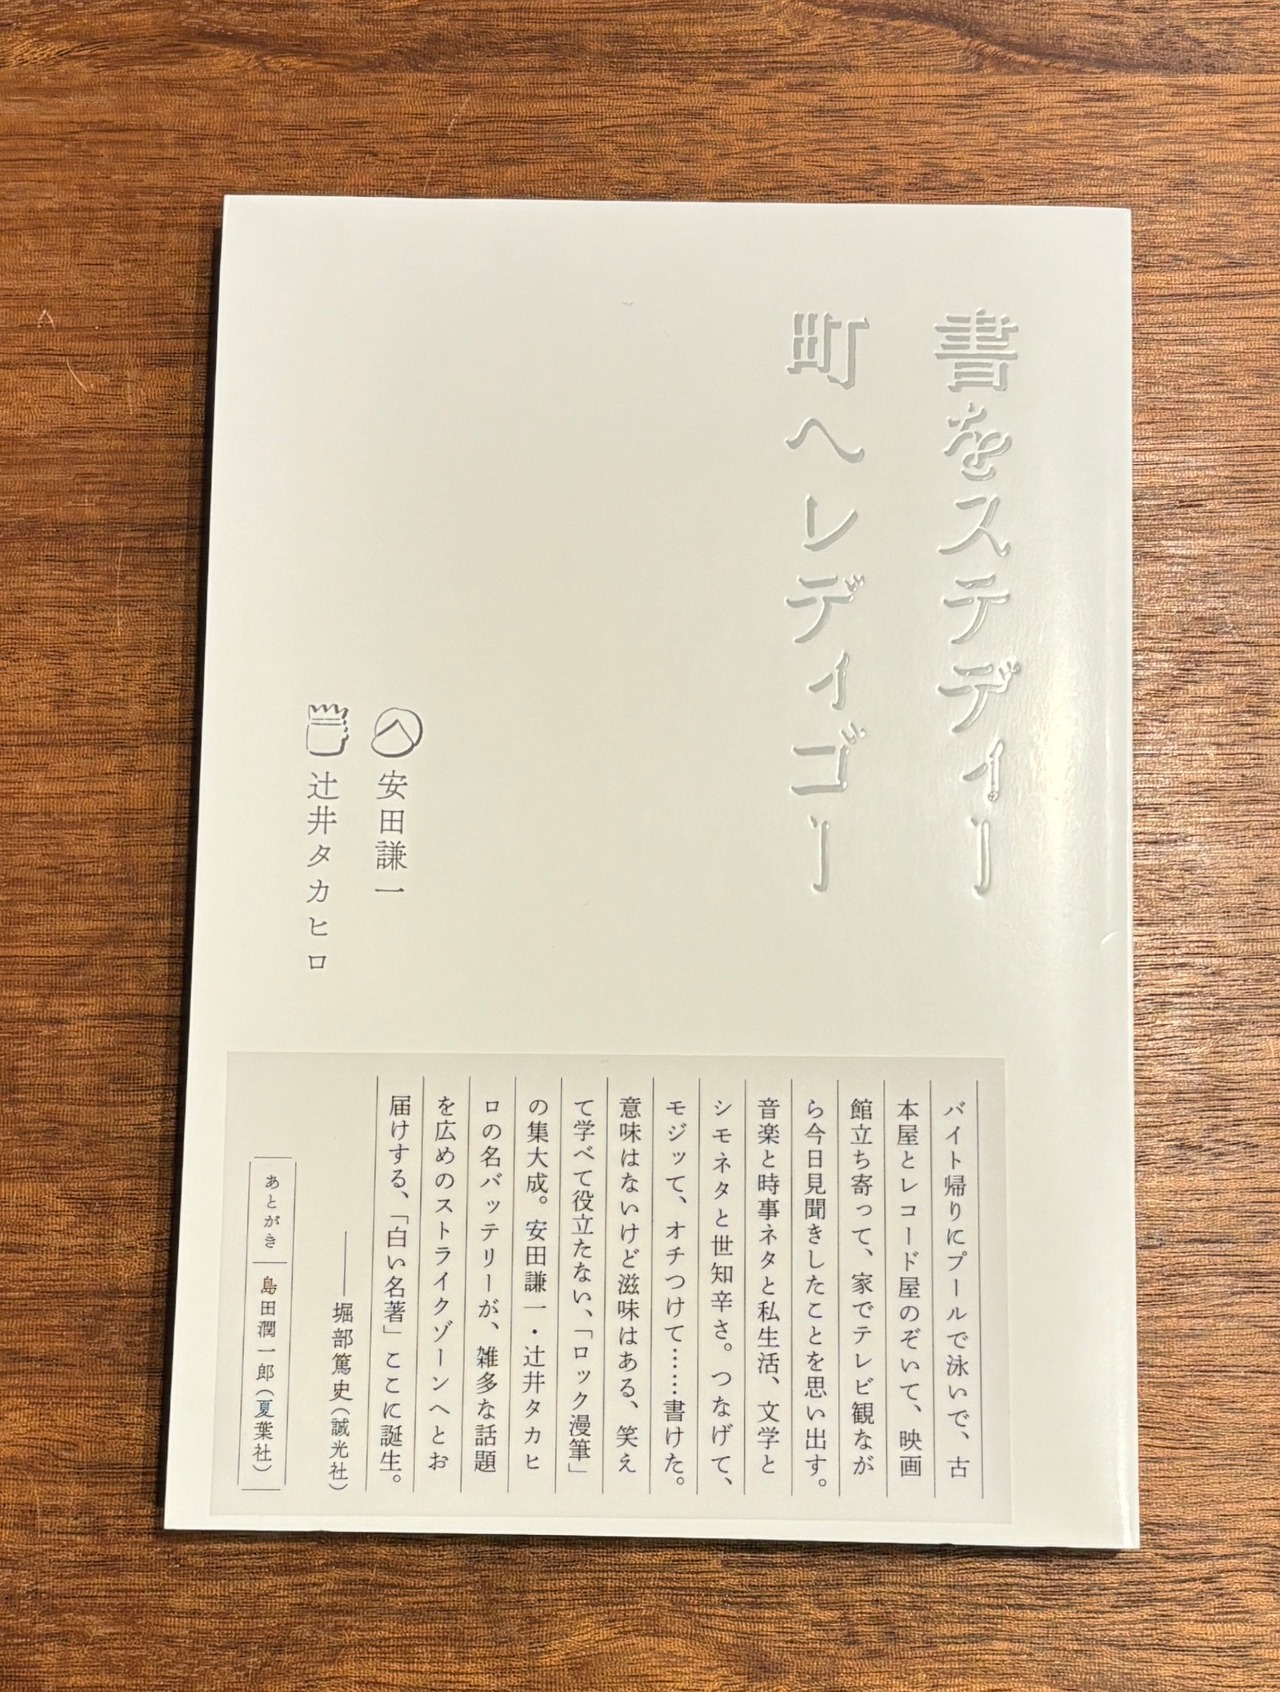 書をステディー
町へレディゴー
安田謙一
辻井タカヒロ
バイト帰りにプールで泳いで、古
本屋とレコード屋のぞいて、映画
館立ち寄って、家でテレビ観なが
ら今日見聞きしたことを思い出す。
音楽と時事ネタと私生活、文学と
シモネタと世知辛さ。つなげて、
モジッて、オチつけて……書けた。
意味はないけど滋味はある、笑え
て学べて役立たない、「ロック漫筆」
の集大成。安田謙一・辻井タカヒ
ロの名バッテリーが、雑多な話題
を広めのストライクゾーンへとお
届けする、「白い名著」ここに誕生。
――堀部篤史（誠光社）
あとがき｜島田潤一郎（夏葉社）